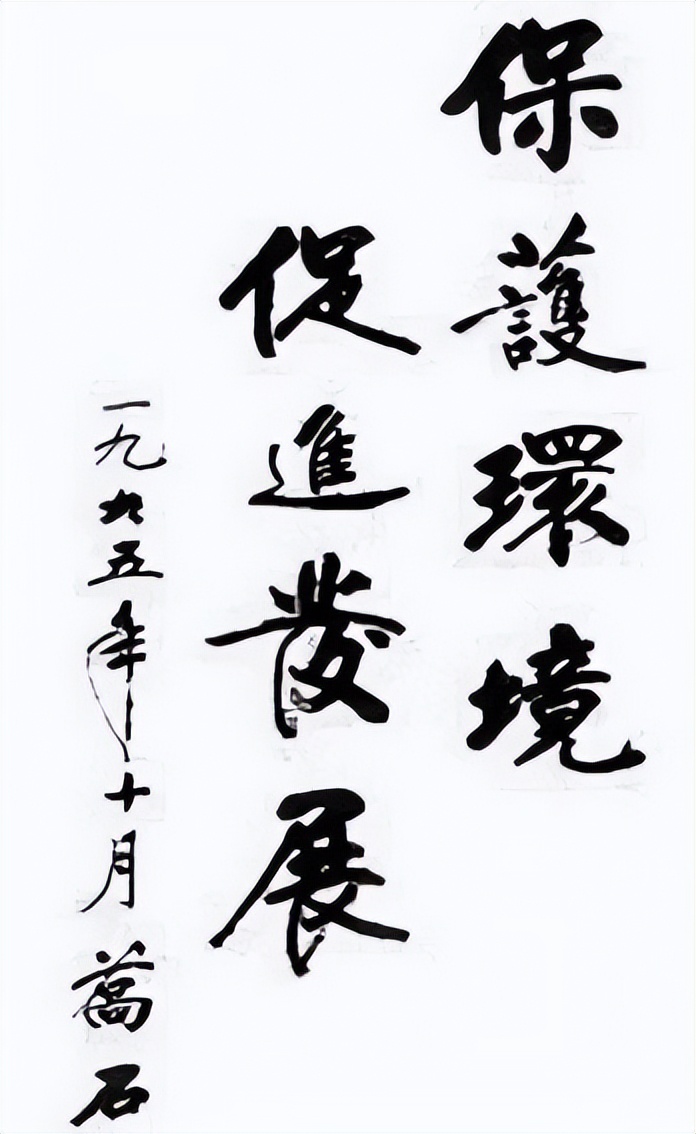 保護環境
促進發展
一九九五年十月 石